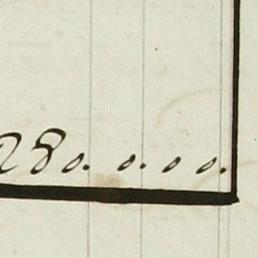 280. 0. 0 0.